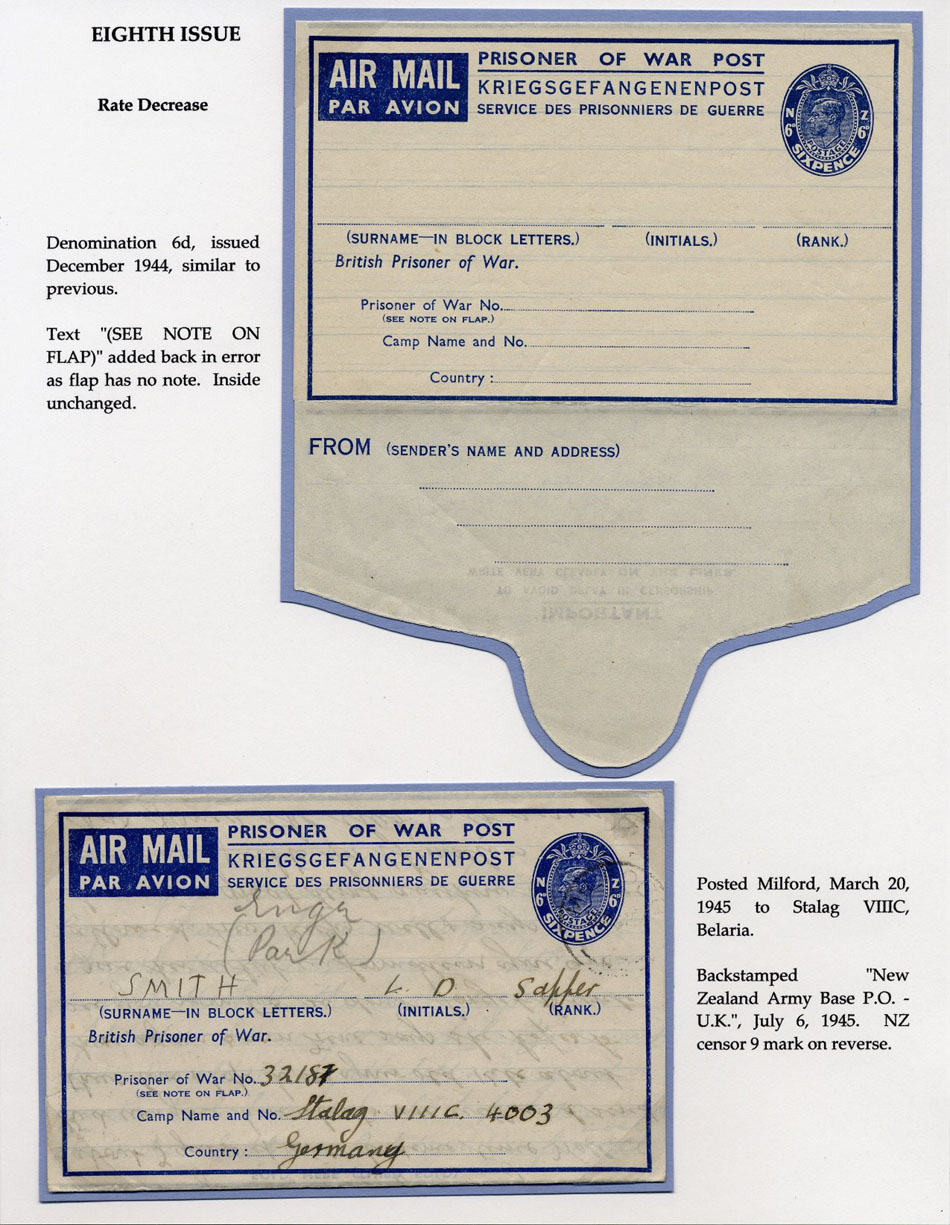 EIGHTH ISSUE
Rate Decrease
Denomination 6d, issued
December 1944, similar to
previous.
Text "(SEE NOTE ON
FLAP)" added back in error
as flap has no note. Inside
unchanged.
AIR MAIL
PAR AVION
PRISONER OF WAR POST
KRIEGSGEFANGENENPOST
SERVICE DES PRISONNIERS DE GUERRE
N Z
6D 6D
POSTAGE
SIXPENCE
(SURNAME—IN BLOCK LETTERS.) (INITIALS.) (RANK.)
British Prisoner of War.
Prisoner of War No.
(SEE NOTE ON FLAP.)
Camp Name and No.
Country :
FROM (SENDER'S NAME AND ADDRESS)
WRITE VERY CLEARLY ON THE LINES
TO AVOID DELAY IN CENSORSHIP
IMPORTANT
AIR MAIL
PAR AVION
PRISONER OF WAR POST
KRIEGSGEFANGENENPOST
SERVICE DES PRISONNIERS DE GUERRE
N Z
6D 6D
POSTAGE
SIXPENCE
(Park)
SMITH L. D Sapper
(SURNAME—IN BLOCK LETTERS.) (INITIALS.) (RANK.)
British Prisoner of War.
Prisoner of War No. 32187
(SEE NOTE ON FLAP.)
Camp Name and No. Stalag VIIIC. 4003
Country : Germany
Posted Milford, March 20,
1945 to Stalag VIIIC,
Belaria.
Backstamped "New
Zealand Army Base P.O. -
U.K.", July 6, 1945. NZ
censor 9 mark on reverse.